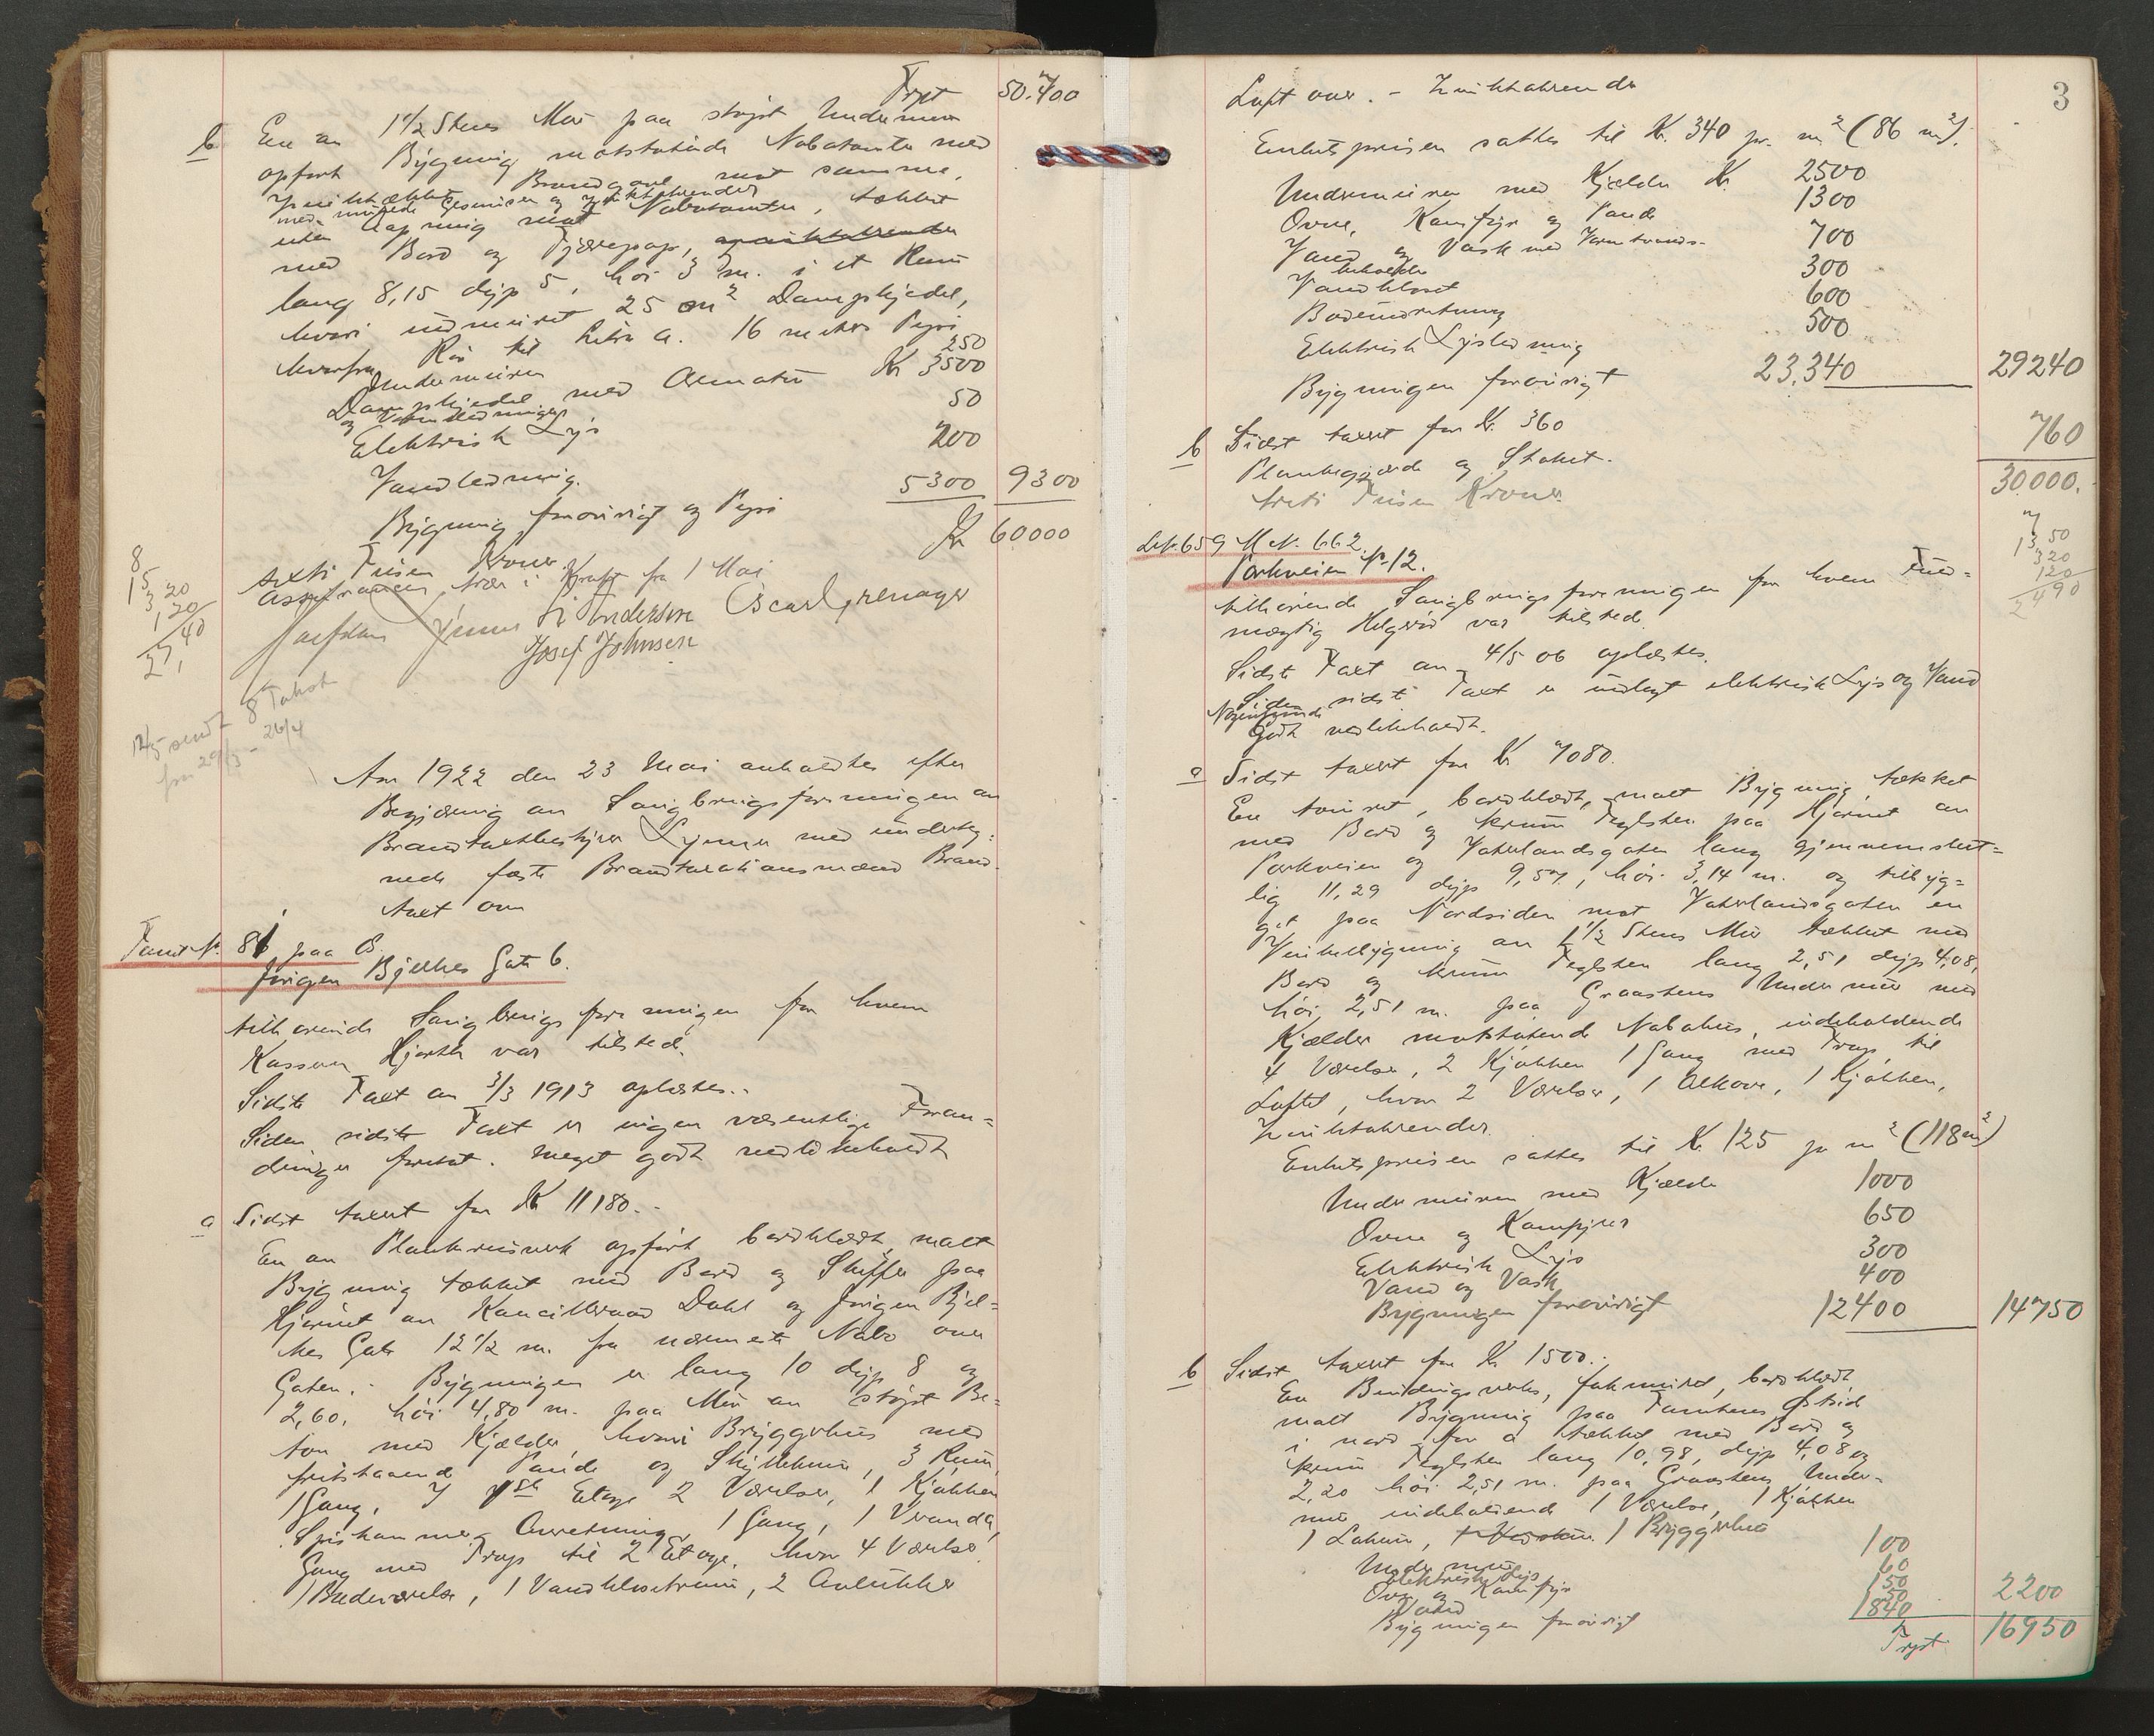 Tryt 50.700
b En av 1 1/2 Stens Mur paa støpt Undermur
opført Bygning motstøtende Nabotomter med
Brandgavl mot samme,
pultækket
med murede Gesimser og zinktakrender
uten Aapning mot Nabotomter, tækket
med Bord og Tjærepap, zinktakrender
lang 8,15 dyp 5, høi 3 m. i et Rum
hvori indmuret 25 m2 Dampkjedel,
hvorfra Rør til Litra a. 16 meters Pipe
Undermuren 250
Dampkjedel med Armatur Kr 3500
og Rørledninger
Elektrisk Lys 50
Vandledning. 200
Bygning forøvrigt og Pipe 5300 9300
Kr 60000
Sexti Tusen Kroner.
Assurancen træder i Kraft fra 1 Mai
A Anderson Oscar Grenager
Josef Johnsen
8
15
3 20
1 20
27,40
12/5 sendt 8 Takst
fra 29/3 - 26/4
Aar 1922 den 23 Mai anholdtes efter
Begjæring av Saugbrugsforeningen av
Brandtaxtbestyrer Lynner med underteg-
nede faste Brandtaxationsmænd Brand-
taxt over
Tomt No. 81 paa Ø.
Jørgen Bjelkes Gate 6.
tilhørende Saugbrugsforeningen for hvem
Kasserer Hjorth var tilsted.
Sidste Taxt av 3/3 1913 oplæstes.-
Siden sidste Taxt er ingen væsentlige Foran=
dringer foretat. Meget godt vedlikeholdt
a Sidst taxert for Kr 11180.-
En av Plankereisverk opført bordklædt malt
Bygning tækket med Bord og Skiffer paa
Hjørnet av Kancelliraad Dahl og Jørgen Bjel=
kes Gate 12 1/2 m. fra nærmeste Nabo over
Gaten. - Bygningen er lang 10 dyp 8 og
2,60, høi 4,80 m. paa Mur av støpt Be=
ton med Kjælder, hvori Bryggerhus med
fritstaaende Pande og Skyllekum, 3 Rum,
1 Gang, I 1ste Etage 2 Værelser, 1 Kjøkken
Spiskammer, Anretning, 1 Gang, 1 Veranda,
Gang med Trap til 2 Etage, hvor 4 Værelser
1 Badeværelse, 1 Vandklosetrum, 2 Avlukker
3
Loft over. - Zinktakrender
Enhetsprisen sattes til Kr. 340 pr. m2 (86 m2).
Undermuren med Kjælder Kr. 2500
Ovne, Komfyr og Pande 1300
Vand og Vask med Varmtvands- 700
beholder
Vandkloset 300
Badeindretning 600
Elektrisk Lysledning 500
Bygningen forøvrigt 23.340 29240
b Sidst taxert for Kr. 360
Plankegjærde og Staket. 760
30.000.
treti Tusen Kroner.
7
1350
320
120
2490
Lit. 659 M.N. 662
Parkveien No 12.
tilhørende Saugbrugsforeningen for hvem Fuld=
mægtig Helgerød var tilsted.
Sidste Taxt av 4/5 06 oplæstes.
Siden sidste Taxt er indlagt elektrisk Lys og Vand
Nogenlunde
godt vedlikeholdt.
a Sidst taxert for Kr 7080.
En tømret, bordklædt, malt Bygning, tækket
med Bord og krum Teglsten paa Hjørnet av
Parkveien og Vaterlandsgaten lang gjennemsnit=
lig 11,29 dyp 9,57, høi 3,14 m. og tilbyg=
get paa Nordsiden mot Vaterlandsgaten en
Vinkelbygning av 1 1/2 Stens Mur tækket med
Bord og krum Teglsten lang 2,51 dyp 4,08,
høi 2,51 m. paa Graastens Undermur med
Kjælder motstøtende Nabohus, indeholdende
4 Værelser, 2 Kjøkken 1 Gang med Trap til
Loftet, hvor 2 Værelser, 1 Alkove, 1 Kjøkken,
Zinktakrender.
Enhetsprisen sattes til Kr. 125 pr m2 (118 m2)
Undermuren med Kjælder 1000
Ovne og Komfyrer 650
Elektrisk Lys 300
Vand og Vask 400
Bygningen forøvrigt 12400 14750
b Sidst taxert for Kr 1500.-
En Bindingsverks, fakmuret, bordklædt,
malt Bygning paa Tomtens Østsid
i nord for a tækket med Bord og
krum Teglsten lang 10,98, dyp 4,08 og
2,20 høi 2,51 m. paa Graastens Under-
mur indeholdende 1 Værelse, 1 Kjøkken
1 Lokum, 1 Bryggerhus
Undermuren 100
Elektrisk Lys 60
Ovn og Komfyr 150
Vand 50
Bygningen forøvrigt 1840 2200
Tryt 16950